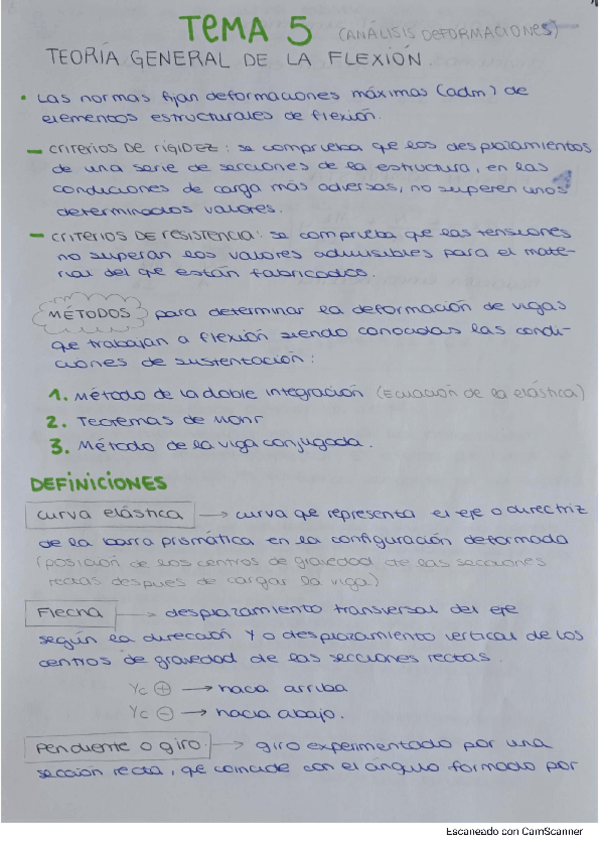 TEMA 5 (ANÁLISIS DEFORMACIONES)
TEORÍA GENERAL DE LA FLEXIÓN.
• Las normas fijan deformaciones máximas (adm) de
elementos estructurales de flexión.
– CRITERIOS DE RIGIDEZ: se comprueba que los desplazamientos
de una serie de secciones de la estructura, en las
condiciones de carga más adversas, no superen unos
determinados valores.
– CRITERIOS DE RESISTENCIA: se comprueba que las tensiones
no superan los valores admisibles para el mate-
rial del que están fabricados.
MÉTODOS para determinar la deformación de vigas
que trabajan a flexión siendo conocidas las condi-
ciones de sustentación:
1. Método de la doble integración (Ecuación de la elástica)
2. Teoremas de Mohr
3. Método de la viga conjugada.
DEFINICIONES
Curva elástica → curva que representa el eje o directriz
de la barra prismática en la configuración deformada
(posición de los centros de gravedad de las secciones
rectas despues de cargar la viga)
Flecha → desplazamiento transversal del eje
según la dirección Y o desplazamiento vertical de los
centros de gravedad de las secciones rectas.
Yc ⊕ → hacia arriba
Yc ⊖ → hacia abajo.
Pendiente o giro. → giro experimentado por una
sección recta, que coincide con el ángulo formado por
Escaneado con CamScanner